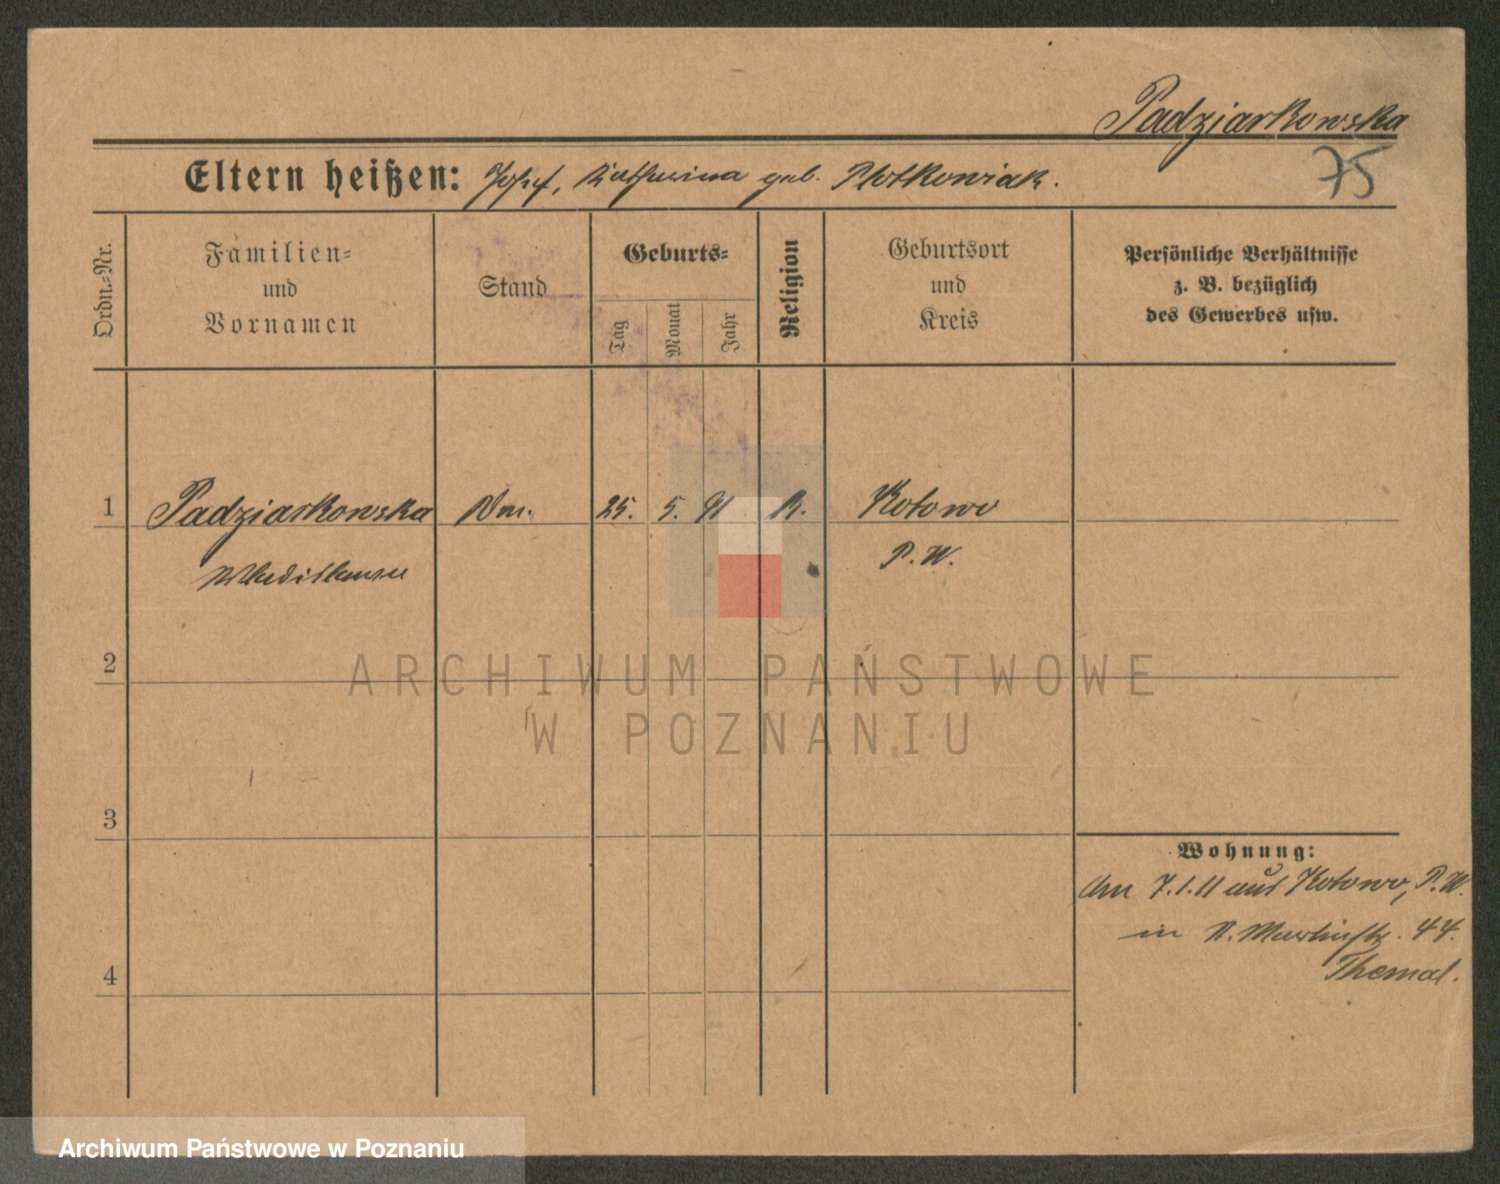 Padziarkowska
75
Eltern heißen: Josef, Katharina geb. Plotkowiak.
Ordn.-Nr.
Familien-
und
Vornamen
Stand
Geburts-
Tag
Monat
Jahr
Religion
Geburtsort
und
Kreis
Persönliche Verhältnisse
z. B. bezüglich
des Gewerbes usw.
1 Padziarkowska 25. 5. 91 K. Kotowo
Wladislawa P. W.
2
ARCHIWUM PAŃSTWOWE
W POZNANIU
3
Wohnung:
Am 7.1.11 aus Kotowo, P. W.
in St. Martinstr. 44.
4
Archiwum Państwowe w Poznaniu